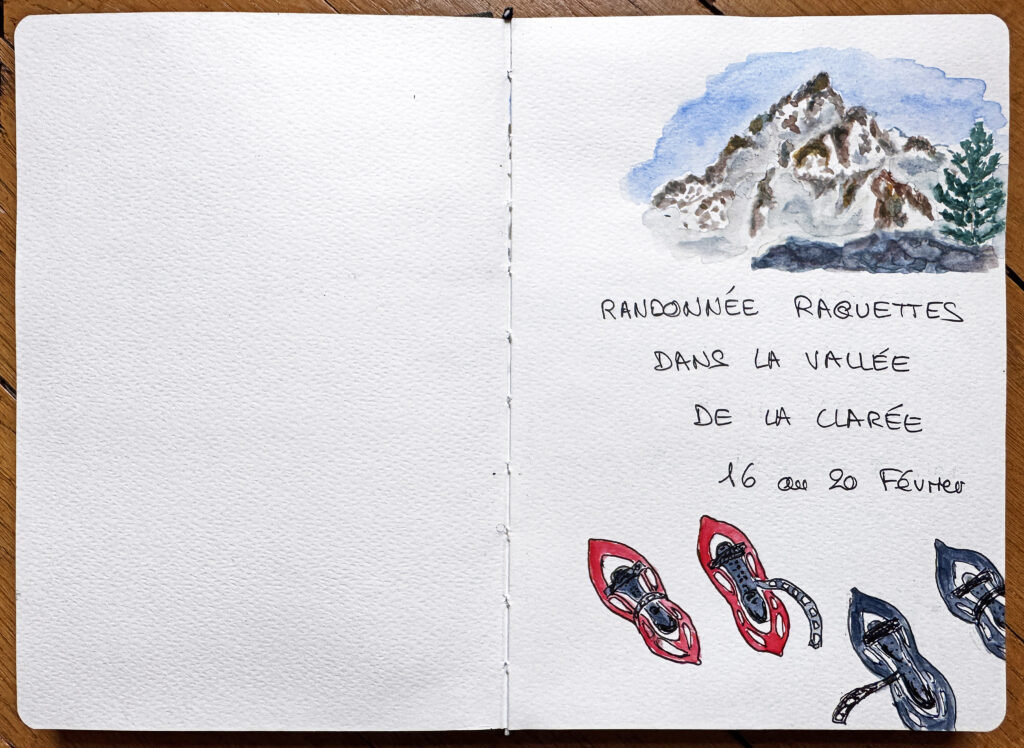 RANDONNÉE RAQUETTES
DANS LA VALLÉE
DE LA CLARÉE
16 au 20 Février